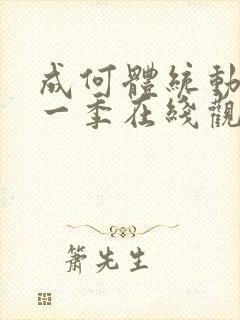 成何體統動
一季在綫觀
簫先生